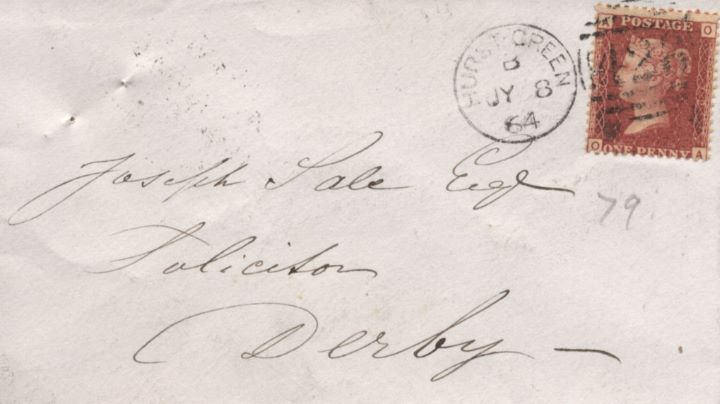 A POSTAGE O
HURST GREEN
B
JY 8
64
O ONE PENNY A
Joseph Sale Esqr
79
Solicitor
Derby —